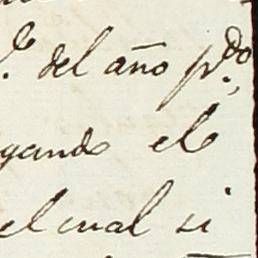 del año pdo,
gando el
el cual si